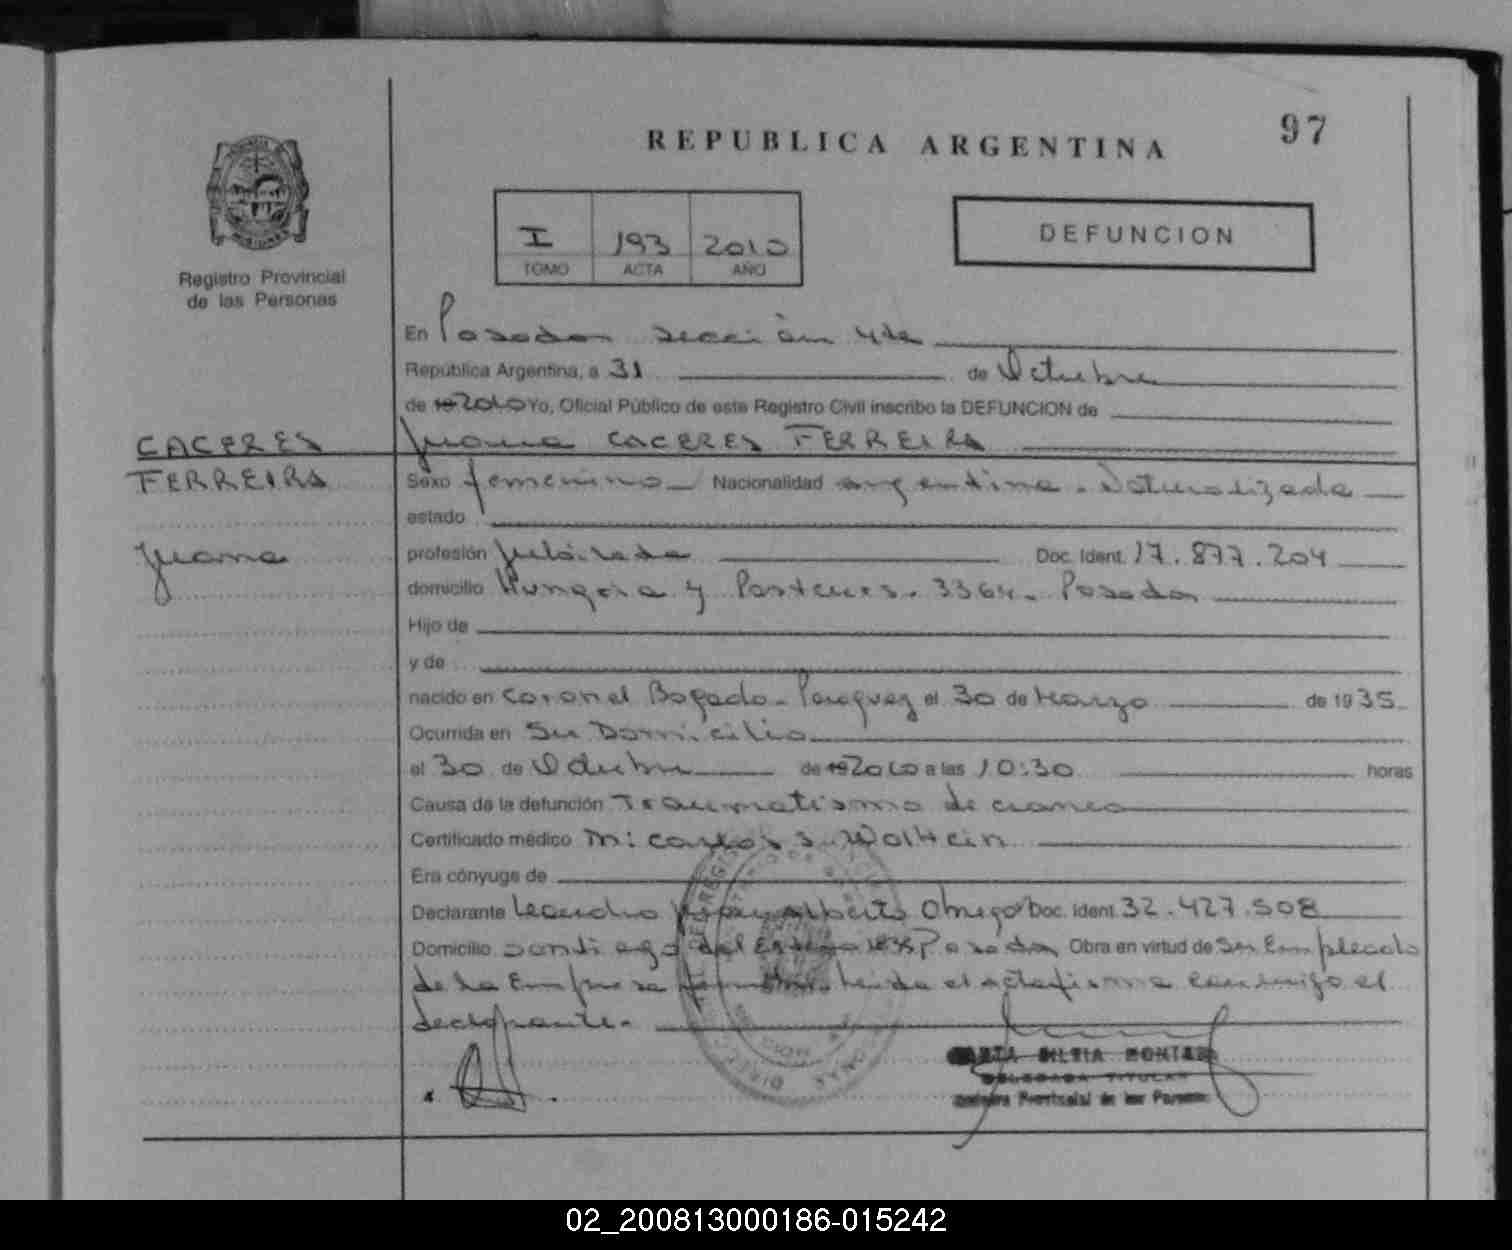 REPUBLICA ARGENTINA
97
Registro Provincial
de las Personas
I 193 2010
TOMO ACTA AÑO
DEFUNCION
En Posadas sección 4ta
República Argentina, a 31 de Octubre
de 19 2010 Yo, Oficial Público de este Registro Civil inscribo la DEFUNCION de
CACERES
Juana CACERES FERREIRA
FERREIRA
Sexo femenino Nacionalidad argentina. Naturalizada
estado
Juana
profesión Jubilada Doc. Ident. 17.877.204
domicilio Hungria y 3364. Posadas
Hijo de
y de
nacido en Coronel Bogado - Paraguay el 30 de Marzo de 1935
Ocurrida en Su Domicilio
el 30 de Octubre de 19 2010 a las 10:30 horas
Causa de la defunción Traumatismo de craneo
Certificado médico Carlos
Era cónyuge de
Declarante Leandro Alberto Doc. Ident. 32.427.508
Domicilio Santiago del Estero Posadas Obra en virtud de Ser Empleado
de la Empresa el acta firma conmigo el
declarante.
SILVIA
DELEGADA TITULAR
Registro Provincial de las Personas
02_200813000186-015242